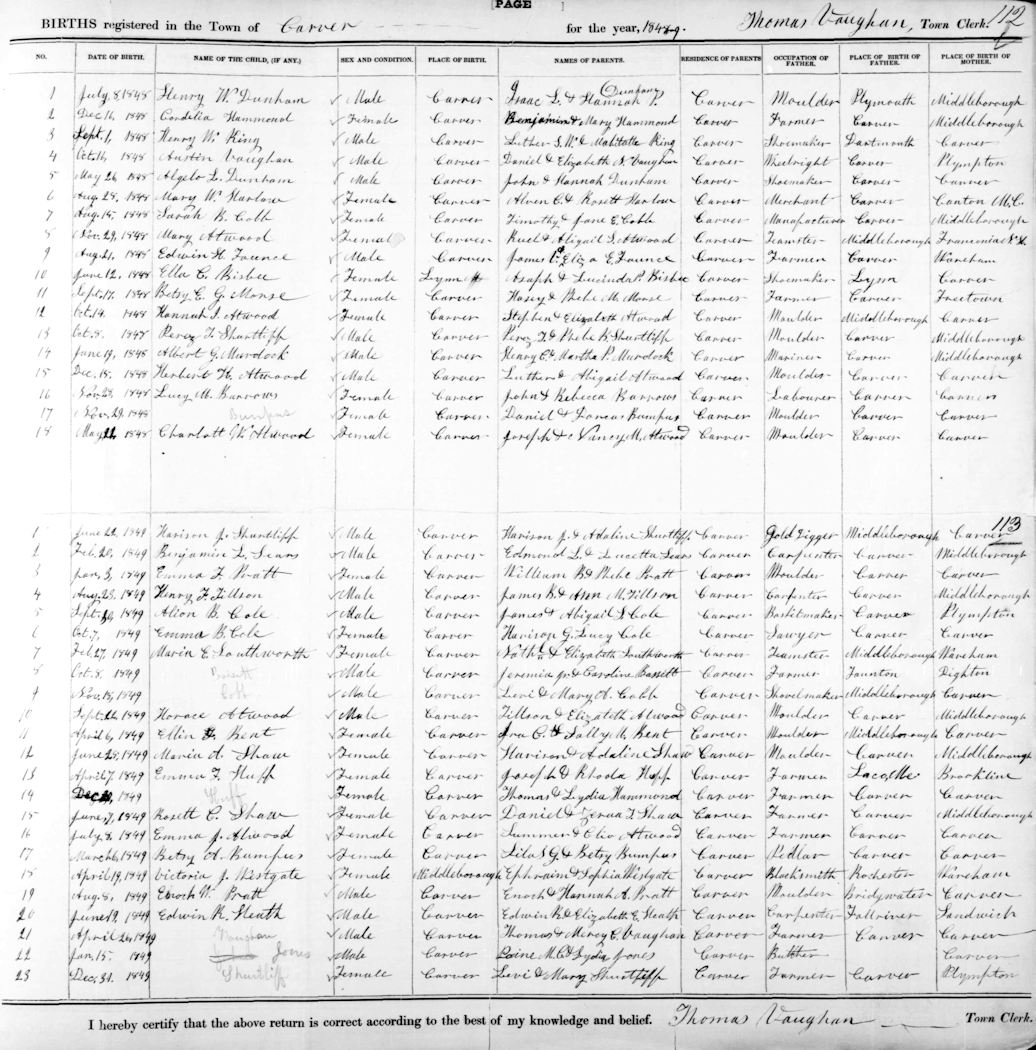 [PAGE]
112
BIRTHS registered in the Town of Carver for the year, 1848-9. Thomas Vaughan, Town Clerk.
NO. DATE OF BIRTH. NAME OF THE CHILD, (IF ANY.) SEX AND CONDITION. PLACE OF BIRTH. NAMES OF PARENTS. RESIDENCE OF PARENTS OCCUPATION OF FATHER. PLACE OF BIRTH OF FATHER. PLACE OF BIRTH OF MOTHER.
1 July 8, 1848 Henry W. Dunham Male Carver Isaac L. & Hannah T. Dunham Carver Moulder Plymouth Middleborough
2 Dec 16, 1848 Cordelia Hammond Female Carver Benjamin & Mary Hammond Carver Farmer Carver Middleborough
3 Sept. 1, 1848 Henry W. King Male Carver Luther S. W. & King Carver Shoemaker Dartmouth Carver
4 Oct. 16, 1848 Austin Vaughan Male Carver Daniel & Elizabeth N. Vaughan Carver Wheelright Carver Plympton
5 May 26 1848 L. Dunham Male Carver John & Hannah Dunham Carver Shoemaker Carver Carver
6 Aug 28, 1848 Mary W. Harlow Female Carver Alven C. & Rosett Harlow Carver Merchant Carver Canton
7 Aug. 15, 1848 Sarah B. Cobb Female Carver Timothy & Jane E. Cobb Carver Manufacturer Carver Middleborough
8 Nov. 29, 1848 Mary Atwood Female Carver & Abigail S. Atwood Carver Teamster Middleborough Franconia N. H.
9 Aug 21, 1848 Edwin H. Faunce Male Carver James & Eliza E. Faunce Carver Farmer Carver Wareham
10 June 12, 1848 Ella C. Bisbee Female Lynn Asaph & Lucinda P. Bisbee Carver Shoemaker Lynn Carver
11 Sept. 17, 1848 Betsy E. G. Morse Female Carver Hosey & Phebe M. Morse Carver Farmer Carver Freetown
12 Oct. 14, 1848 Hannah T. Atwood Female Carver Stephen & Elizabeth Atwood Carver Moulder Middleborough Carver
13 Oct. 8, 1848 Perez T. Shurtliff Male Carver Perez T. & Phebe K. Shurtliff Carver Moulder Carver Middleborough
14 June 19, 1848 Albert G. Murdock Male Carver Henry C. & Martha P. Murdock Carver Mariner Carver Middleborough
15 Dec. 15, 1848 Herbert H. Atwood Male Carver Luther & Abigail Atwood Carver Moulder Carver Carver
16 Nov. 23, 1848 Lucy M. Barrows Female Carver John & Rebecca Barrows Carver Labourer Carver Carver
17 Nov. 29, 1848 Bumpus Female Carver Daniel & Dorcas Bumpus Carver Moulder Carver Carver
18 May 1848 Charlott W. Atwood Female Carver Joseph & Nancy M. Atwood Carver Moulder Carver Carver
113
1 June 22, 1849 Harison J. Shurtliff Male Carver Harison J. & Adaline Shurtliff Carver Gold Digger Middleborough Carver
2 Feb. 20, 1849 Benjamin L. Sears Male Carver Edmond L. & Lucetta Sears Carver Carpenter Carver Middleborough
3 Jan. 3, 1849 Emma F. Pratt Female Carver William B. & Phebe Pratt Carver Moulder Carver Carver
4 Aug. 25, 1849 Henry F. Tillson Male Carver James B. & Ann M. Tillson Carver Carpenter Carver Middleborough
5 Sept. 1849 Alton B. Cole Male Carver James & Abigail S. Cole Carver Basketmaker Carver Plympton
6 Oct. 7, 1849 Emma B. Cole Female Carver Harison G. Lucy Cole Carver Sawyer Carver Carver
7 Feb. 27, 1849 Maria E. Southworth Female Carver & Elizabeth Southworth Carver Teamster Middleborough Wareham
8 Oct. 8, 1849 Bassett Male Carver Jeremia jr. & Caroline Bassett Carver Farmer Taunton Dighton
9 Nov. 15, 1849 Cobb Male Carver Levi & Mary A. Cobb Carver Shovelmaker Middleborough Carver
10 Sept. 22, 1849 Horace Atwood Male Carver Tillson & Elizabeth Atwood Carver Moulder Carver Middleborough
11 April 6, 1849 Ellin Bent Female Carver Ira C. & Sally M. Bent Carver Moulder Middleborough Carver
12 June 28, 1849 Maria A. Shaw Female Carver Harison & Adaline Shaw Carver Moulder Carver Middleborough
13 April 7, 1849 Emma F. Huff Female Carver Joseph & Rhoda Huff Carver Farmer Saco, Me Brookline
14 Dec 1849 Huff Female Carver Thomas & Lydia Hammond Carver Farmer Carver Carver
15 June 7, 1849 Rosett C. Shaw Female Carver Daniel & T. Shaw Carver Farmer Carver Middleborough
16 July 8, 1849 Emma J. Atwood Female Carver Summer & Atwood Carver Farmer Carver Carver
17 March 6, 1849 Betsy A. Bumpus Female Carver Silas G. & Betsy Bumpus Carver Pedlar Carver Carver
18 April 19, 1849 Victoria J. Westgate Female Middleborough Ephraim & Sophia Westgate Carver Blacksmith Rochester Wareham
19 Aug. 8, 1849 Enoch W. Pratt Male Carver Enoch & Hannah A. Pratt Carver Moulder Bridgwater Carver
20 June 19, 1849 Edwin R. Sleuth Male Carver Edwin R. & Elizabeth E. Sleuth Carver Carpenter Fallriver Sandwich
21 April 26, 1849 Vaughan Male Carver Thomas & Mercy C. Vaughan Carver Farmer Carver Carver
22 Jan. 15, 1849 Jones Male Carver M. C. & Lydia Jones Carver Butcher Carver
23 Dec. 31, 1849 Shurtliff Female Carver Levi & Mary Shurtliff Carver Farmer Carver Plympton
I hereby certify that the above return is correct according to the best of my knowledge and belief. Thomas Vaughan Town Clerk.